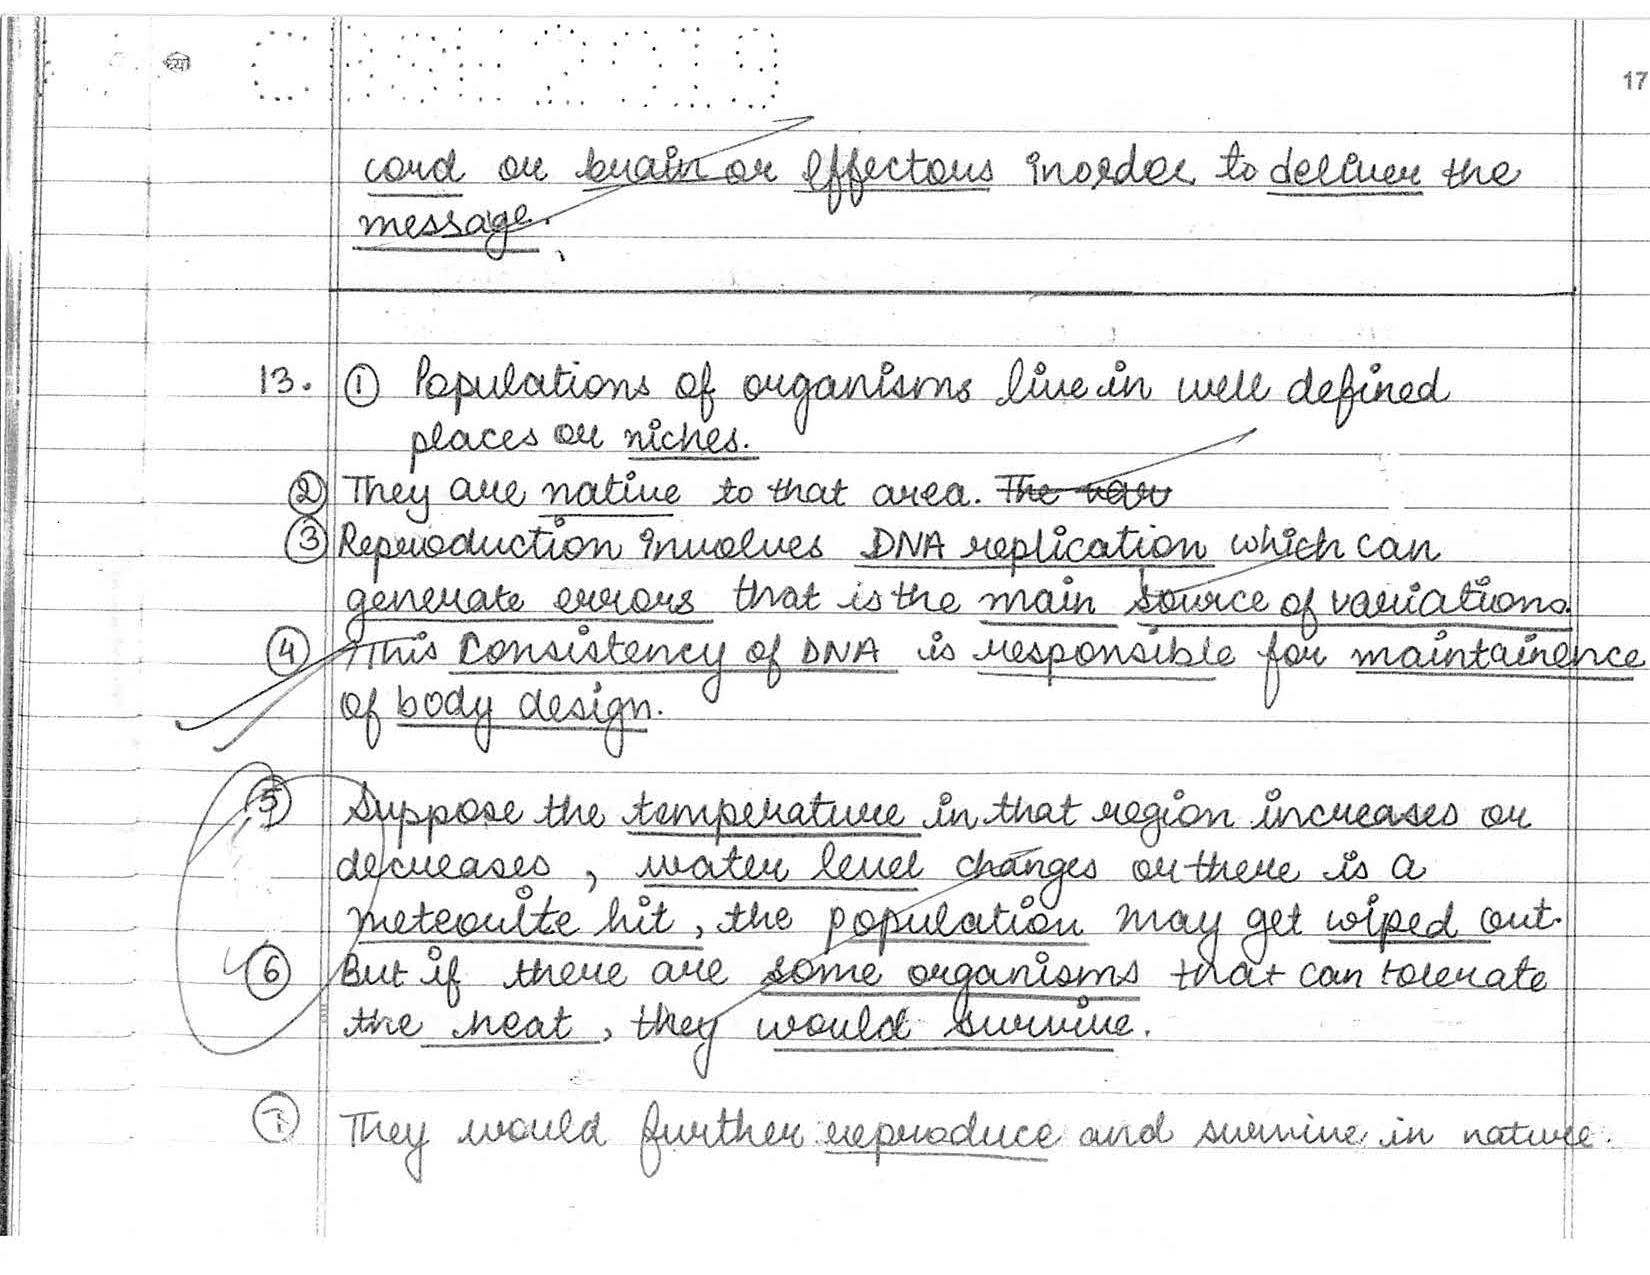 CBSE 2019
17
cord or brain or effectors inorder to deliver the
message.
13. ① Populations of organisms live in well defined
places or niches.
② They are native to that area. The var
③ Reproduction involves DNA replication which can
generate errors that is the main source of variations.
④ This Consistency of DNA is responsible for maintainence
of body design.
⑤ Suppose the temperature in that region increases or
decreases, water level changes or there is a
meteorite hit, the population may get wiped out.
⑥ But if there are some organisms that can tolerate
the heat, they would survive.
⑦ They would further reproduce and survive in nature.